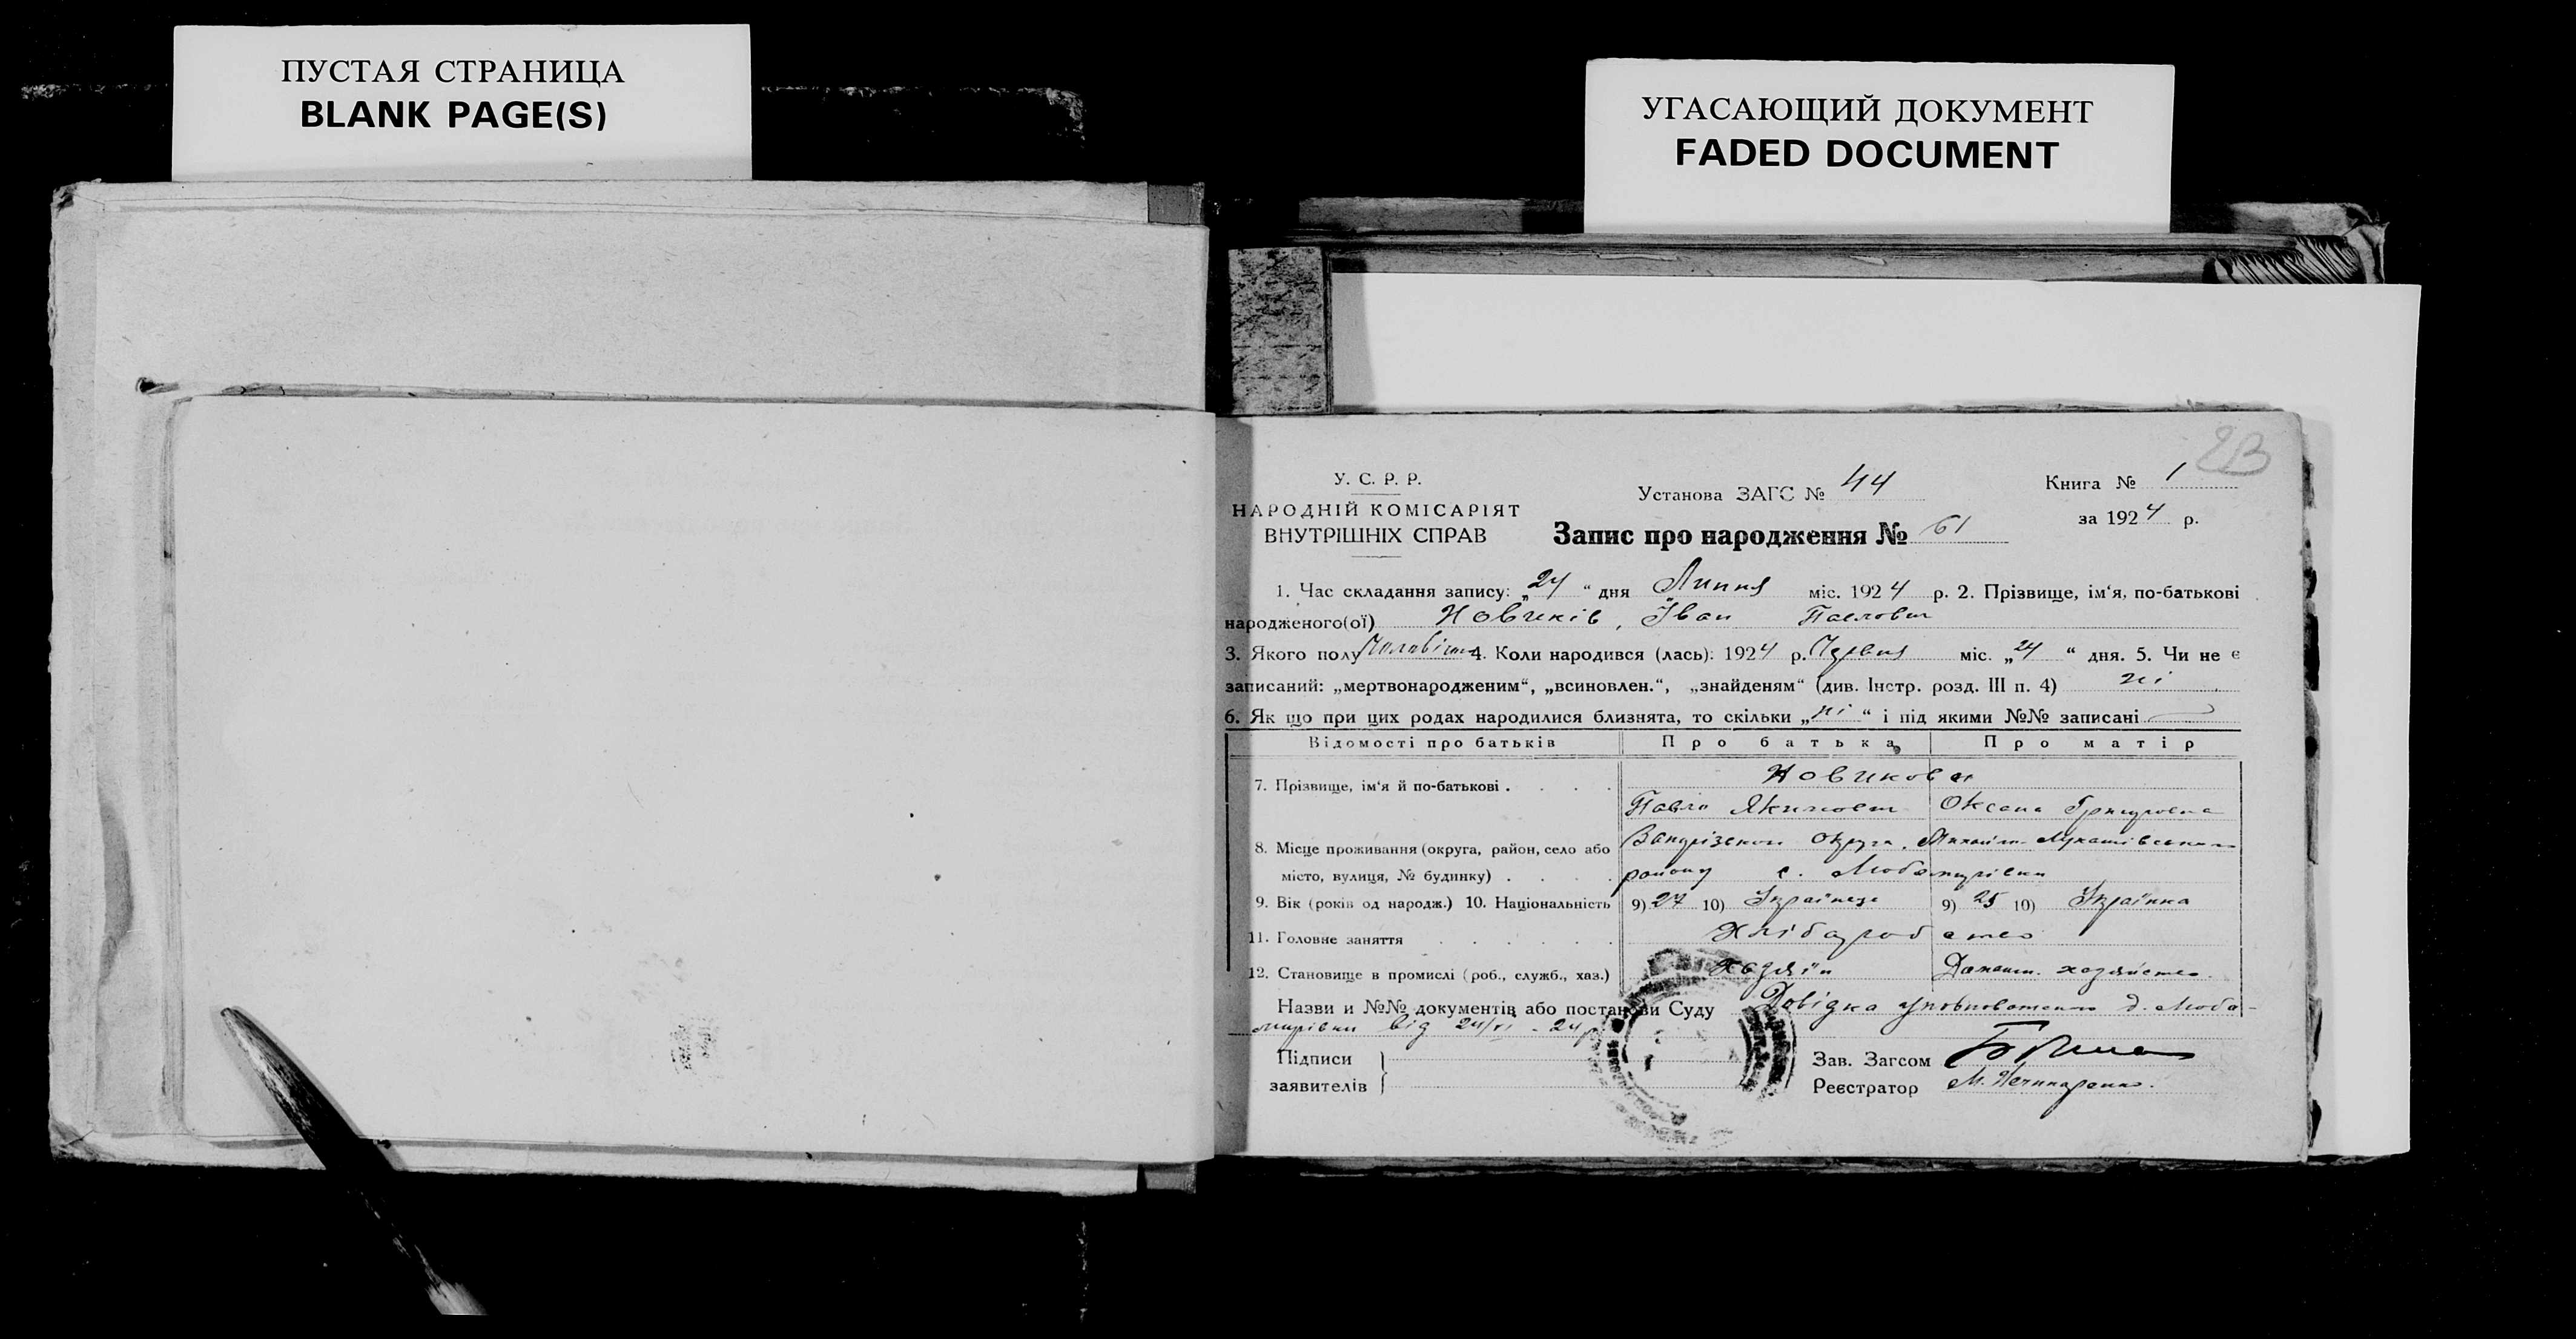 ПУСТАЯ СТРАНИЦА
BLANK PAGE(S)
УГАСАЮЩИЙ ДОКУМЕНТ
FADED DOCUMENT
23
У. С. Р. Р.
НАРОДНІЙ КОМІСАРІЯТ
ВНУТРІШНІХ СПРАВ
Установа ЗАГС № 44
Книга № 1
за 1924 р.
Запис про народження № 61
1. Час складання запису: „24“ дня Липня міс. 1924 р. 2. Прізвище, ім‘я, по-батькові
народженого(ої) Новиків, Іван Павлович
3. Якого полу Чоловіч. 4. Коли народився (лась): 1924 р. Червня міс. „24“ дня. 5. Чи не є
записаний: „мертвонародженим“, „всиновлен.“, „знайденям“ (див. Інстр. розд. III п. 4) ні
6. Як що при цих родах народилися близнята, то скільки „ні“ і під якими №№ записані
Відомості про батьків Про батька Про матір
7. Прізвище, ім‘я й по-батькові . . . . Новикови
Павло Якимович Оксана Григоровна
8. Місце проживання (округа, район, село або Запорізької Округи, Михайло-Лукашівського
місто, вулиця, № будинку) . . . . району с. Любомирівки
9. Вік (років од народж.) 10. Національність 9) 27 10) Українець 9) 25 10) Українка
11. Головне заняття . . . . . . Хлібаробство
12. Становище в промислі (роб., служб., хаз.) Хазяїн Домашн. хазяйство.
Назви и №№ документів або постанови Суду Довідка уповноваженого д. Любо-
мирівки від 24/VI - 24 р
Підписи
заявителів
Зав. Загсом
Реєстратор М.